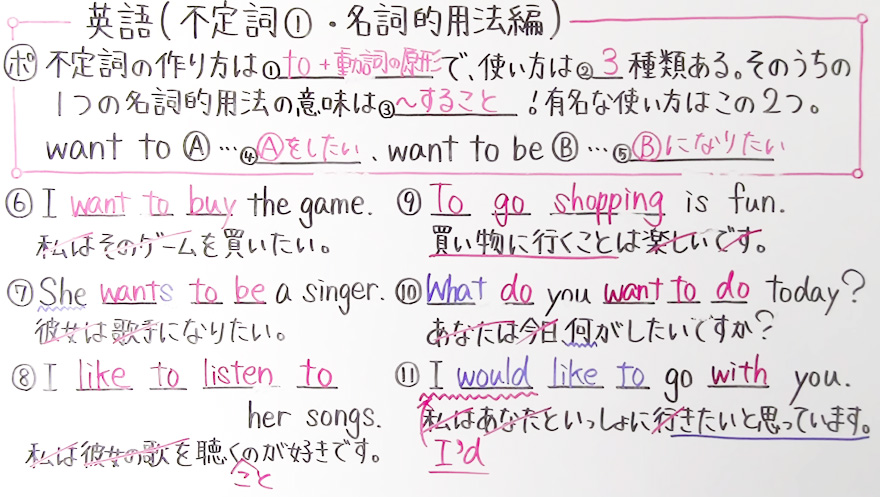 英語(不定詞①・名詞的用法編)
ポ 不定詞の作り方は①to+動詞の原形で、使い方は②3種類ある。そのうちの
1つの名詞的用法の意味は③〜すること!有名な使い方はこの2つ。
want to Ⓐ…④Ⓐをしたい、want to be Ⓑ…⑤Ⓑになりたい
⑥ I want to buy the game.
私はそのゲームを買いたい。
⑦ She wants to be a singer.
彼女は歌手になりたい。
⑧ I like to listen to
her songs.
私は彼女の歌を聴くのが好きです。
こと
⑨ To go shopping is fun.
買い物に行くことは楽しいです。
⑩ What do you want to do today?
あなたは今日、何がしたいですか?
⑪ I would like to go with you.
私はあなたといっしょに行きたいと思っています。
I'd